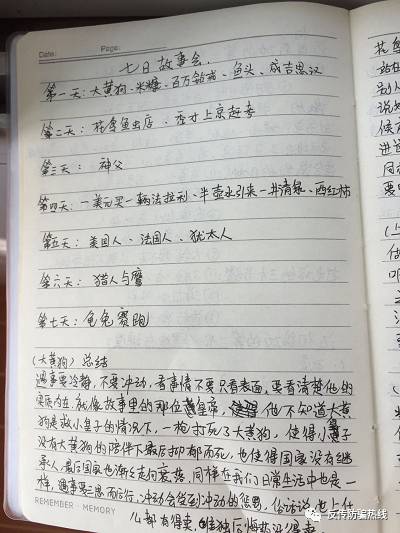 Date: Page:
七日故事会.
第一天:大黄狗、米糠、百万钻戒、鱼头、成吉思汉
第二天: 花鸟鱼虫店 、秀才上京赶考
第三天: 神父
第四天:一美元买一辆法拉利、半壶水引来一井清泉、西红柿
第五天:美国人、法国人、犹太人
第六天:猎人与鹰
第七天:龟兔赛跑
(大黄狗)总结
遇事要冷静,不要冲动,看事情不要只看表面,要看清楚他的
实质内在,就像故事里的那位皇帝,他不知道大黄
狗是救小皇子的情况下,一枪打死了大黄狗,使得小皇子
没有大黄狗的陪伴下最后抑郁而死,也使得国家没有继
承人最后国家也渐渐走向衰落,同样在我们日常生活中也是一
样,遇事要三思而后行,冲动会受到冲动的惩罚,俗话说,世上什
么都有得卖,唯独后悔药没得卖.
REMEMBER · MEMORY
花鸟
站在
别人
说她
候
进
同
要
(
做
叩
反传防骗热线